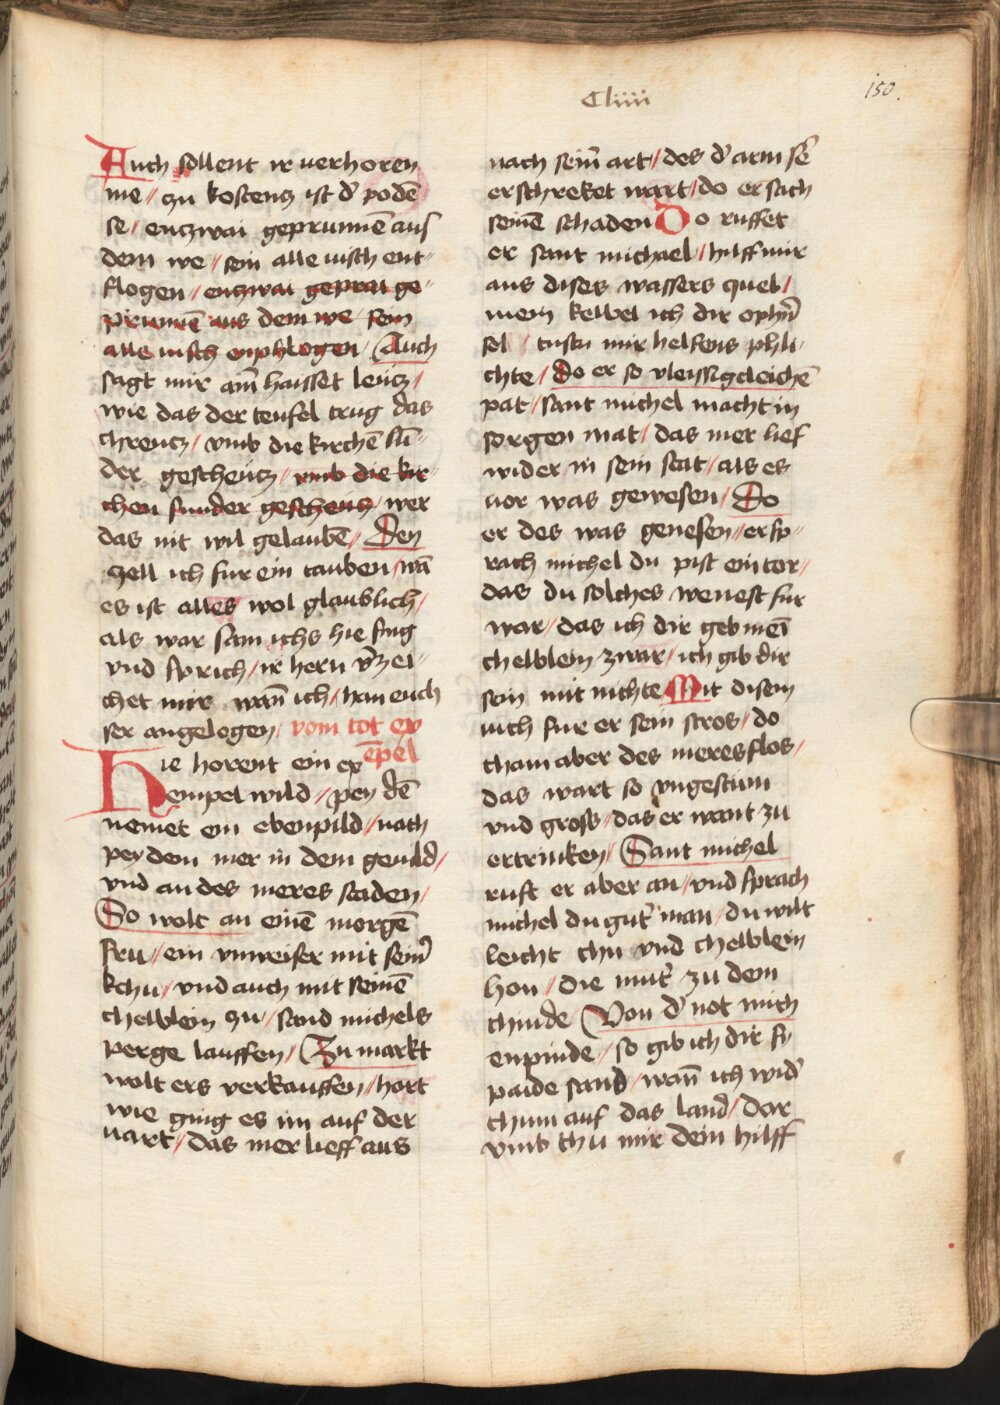 Cliiii
150.
Auch sollent ir uerhoren
me / zu kostencz ist d' podē
se / enczwai geprunnē aus
dem we / sein alle uisch ent-
flogen / enzwai geprai ge-
prunnē aus dem we sein
alle uisch enphlogen / Auch
sagt mir am̄ haisset leucz /
wie das der teufel trug das
chreucz / vmb die kirchē sū-
der gescheucz / vmb die kir-
chen sunder gescheucz / wer
das nit wil gelaubē / Den
zell ich fur ein tauben / wā
es ist alles wol glaublich /
als war sam ichs hie sing
vnd sprich / ir hern v'zei-
chet mir wan̄ ich / han euch
ser angelogen / vom tot ex
ēpel
Hie horent ein ex
empel wild / pey dē
nemet ein ebenpild / nach
pey dem mer in dem geuild /
vnd an des meres staden /
So wolt an einē morgē
fru / ein vnweiser mit seim̄
kchu / vnd auch mit seinē
chelblein zu / sand michels
perge lauffen / Zu markt
wolt ers verkauffen / hort
wie ging es im auf der
uart / das mer lieff aus
nach seim̄ art / des d' arm sē
erschreket wart / do er sach
seinē schaden Do ruffet
er sant michael / hilff mir
aus dises wassers quel /
mein kelbel ich dir ophn̄
sol / tustu mir helfens phli-
chte / Do er so vleissigcleichē
pat / sant michel macht in
sorgen mat / das mer lief
wider in sein stat / als es
uor was gewesen / Do
er des was genesen / er sp-
rach michel du pist ein tor /
das du solches wenest fur
war / das ich dir geb mei
chelblein zwar / ich gib dir
sein mit nichte Mit disem
uich fur er sein stros / do
cham aber des meres flos /
das wart so vngestum
vnd gross / das er want zu
ertrinken / Sant michel
ruft er aber an / vnd sprach
michel du gut' man / du wilt
leicht chu vnd chelblein
hon / die mut' zu dem
chinde Von d' not mich
enpinde / so gib ich dir sy
paide sand / wan̄ ich wid'
chum auf das land / dar
vmb thu mir dein hilff